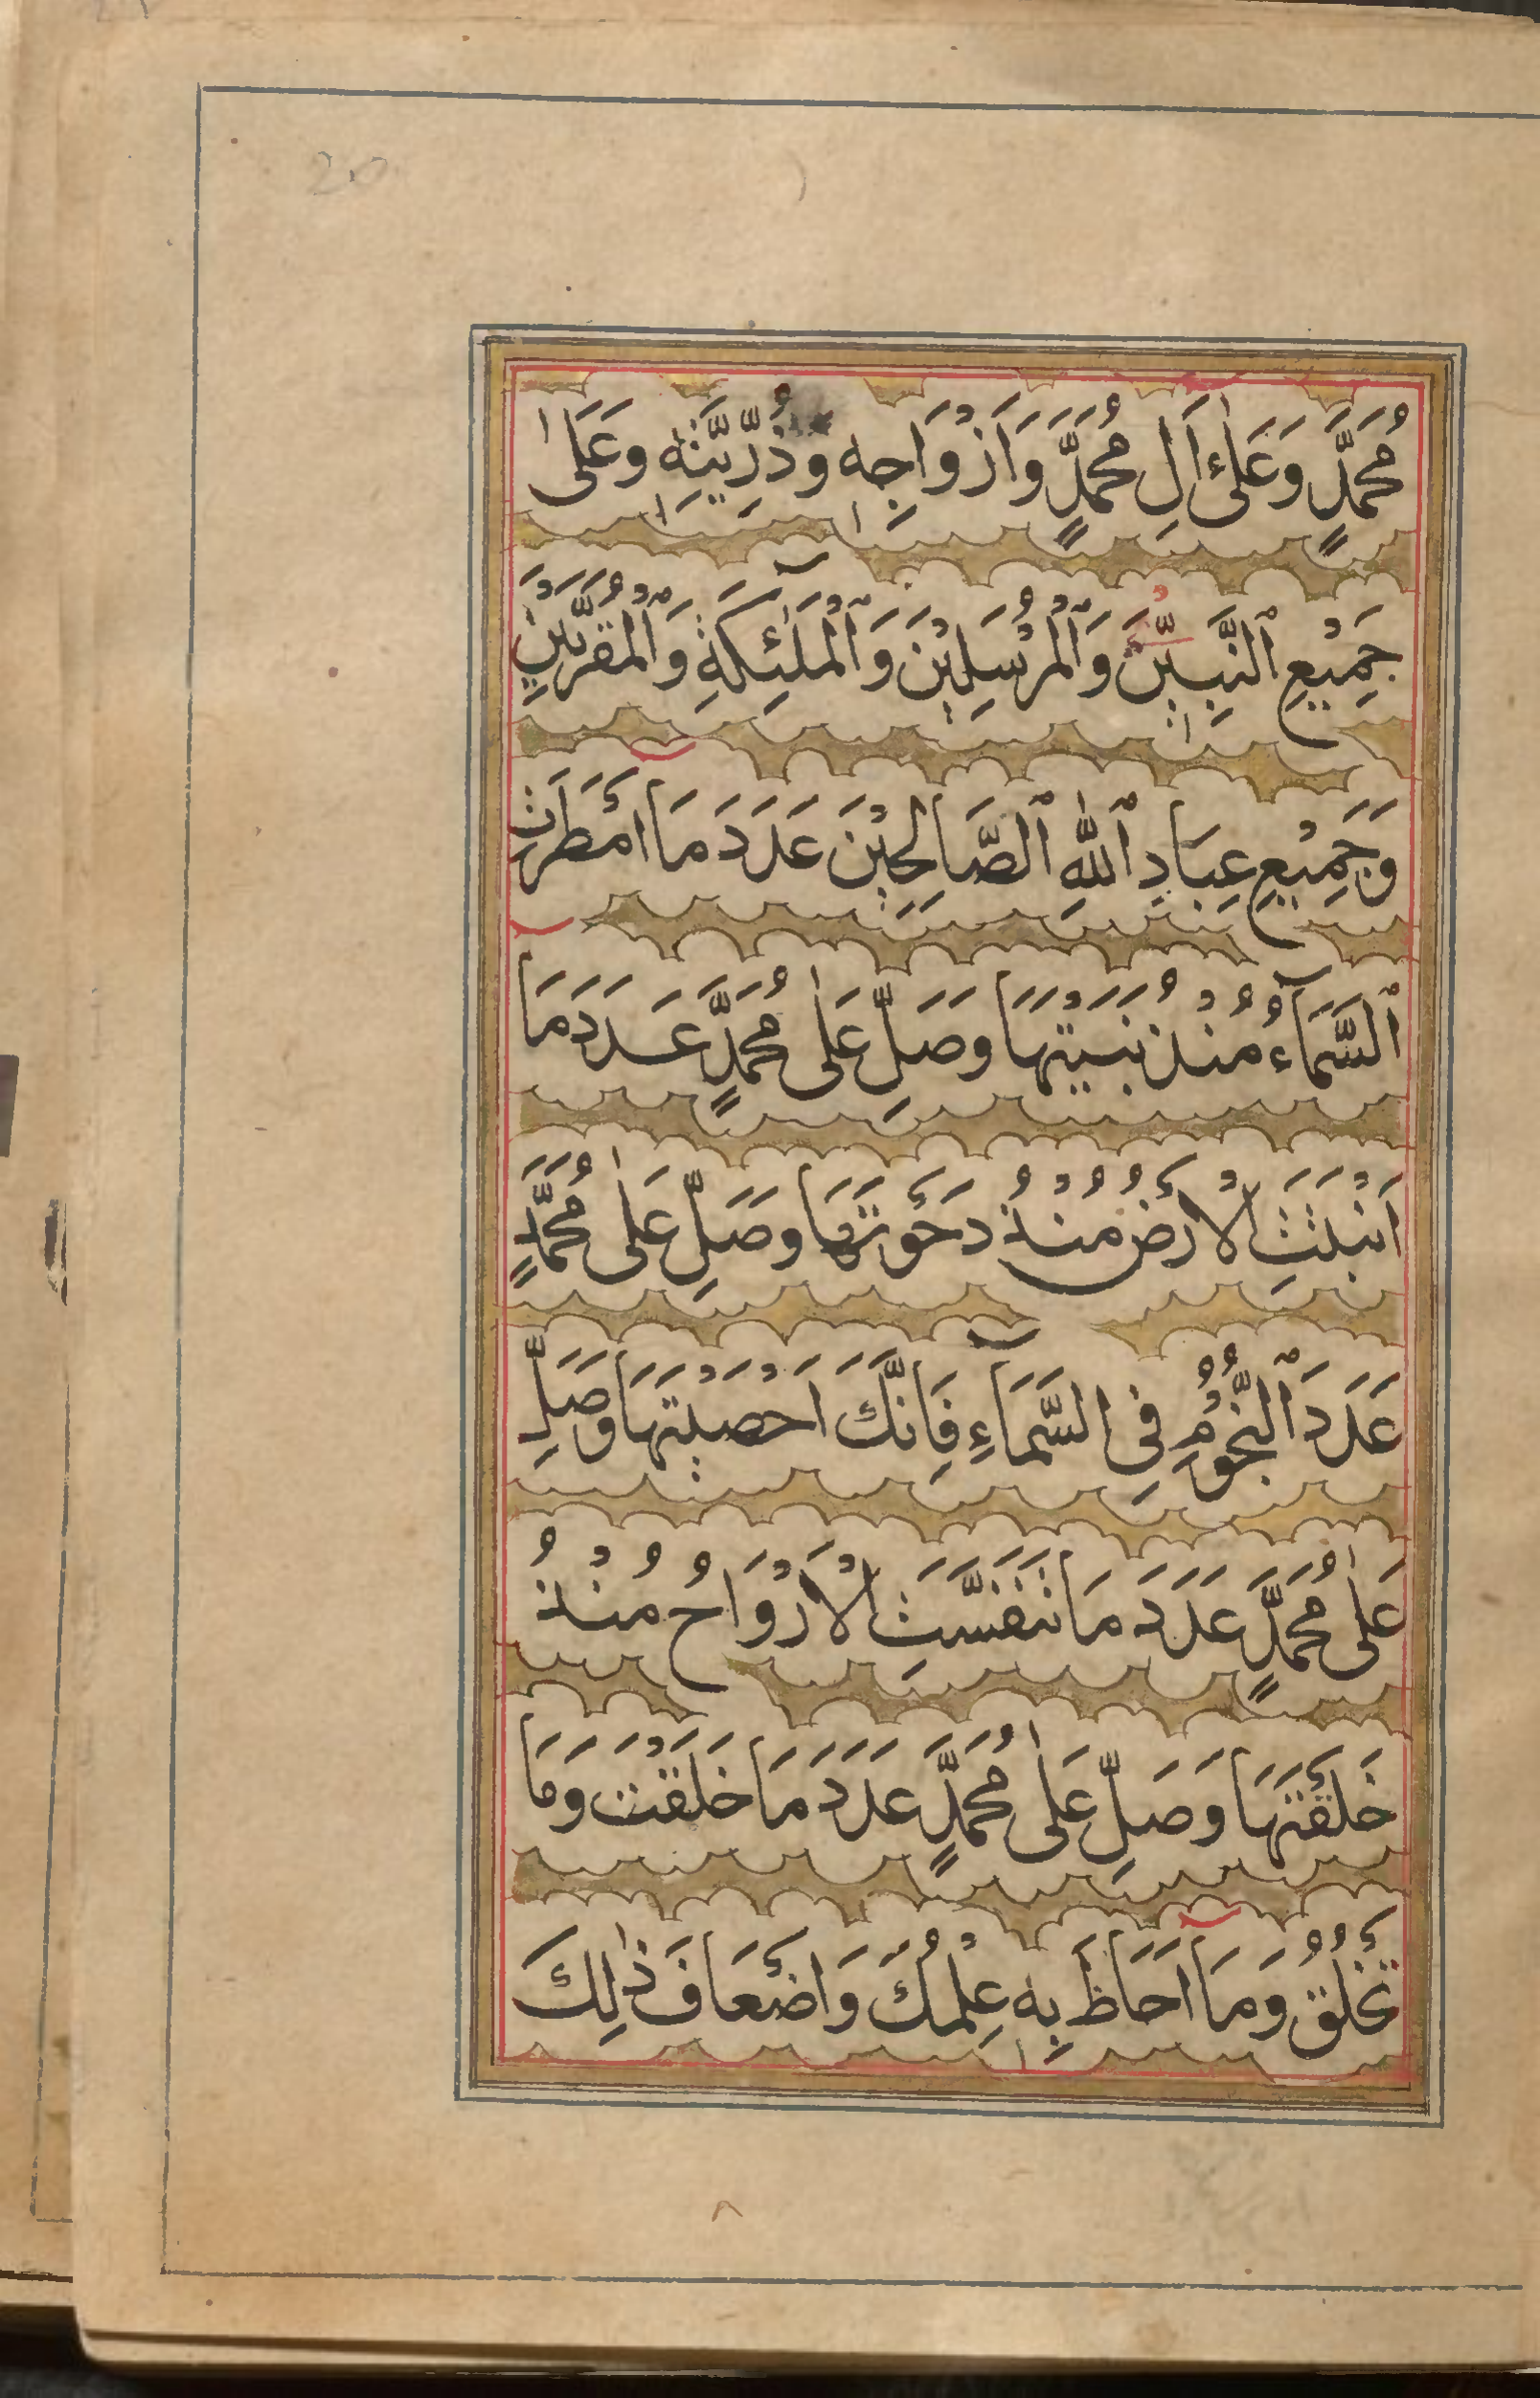 20
مُحَمَّدٍ وَعَلىٰ اَلِ مُحَمَّدٍ وَاَزْوَاجِهٖ وذُرِّيَّتِهٖ وعَلىٰ
جَمِيْعِ ٱلنَّبِيّٖنَ وَٱلْمُرْسَلِيْنَ وَٱلْمَلٰٓئِكَةِ وَٱلْمُقَرَّبِيْنَ
وَجَمِيْعِ عِبَادِ ٱللّٰهِ ٱلصَّالِحِيْنَ عَدَدَ مَا اَمْطَرَتِ
ٱلسَّمَآءُ مُنْذُ بَنَيْتَهَا وصَلِّ عَلىٰ مُحَمَّدٍ عَدَدَ مَا
اَنْبَتَتِ الْاَرْضُ مُنْذُ دَحَوْتَهَا وصَلِّ عَلىٰ مُحَمَّدٍ
عَدَدَ ٱلنُّجُوْمِ فِى السَّمَآءِ فَاِنَّكَ اَحْصَيْتَهَا وَصَلِّ
عَلىٰ مُحَمَّدٍ عَدَدَ مَا تَنَفَّسَتِ الْاَرْوَاحُ مُنْذُ
خَلَقْتَهَا وَصَلِّ عَلىٰ مُحَمَّدٍ عَدَدَ مَا خَلَقْتَ وَمَا
تَخْلُقُ وَمَا اَحَاطَ بِهٖ عِلْمُكَ وَاَضْعَافَ ذٰلِكَ
٨